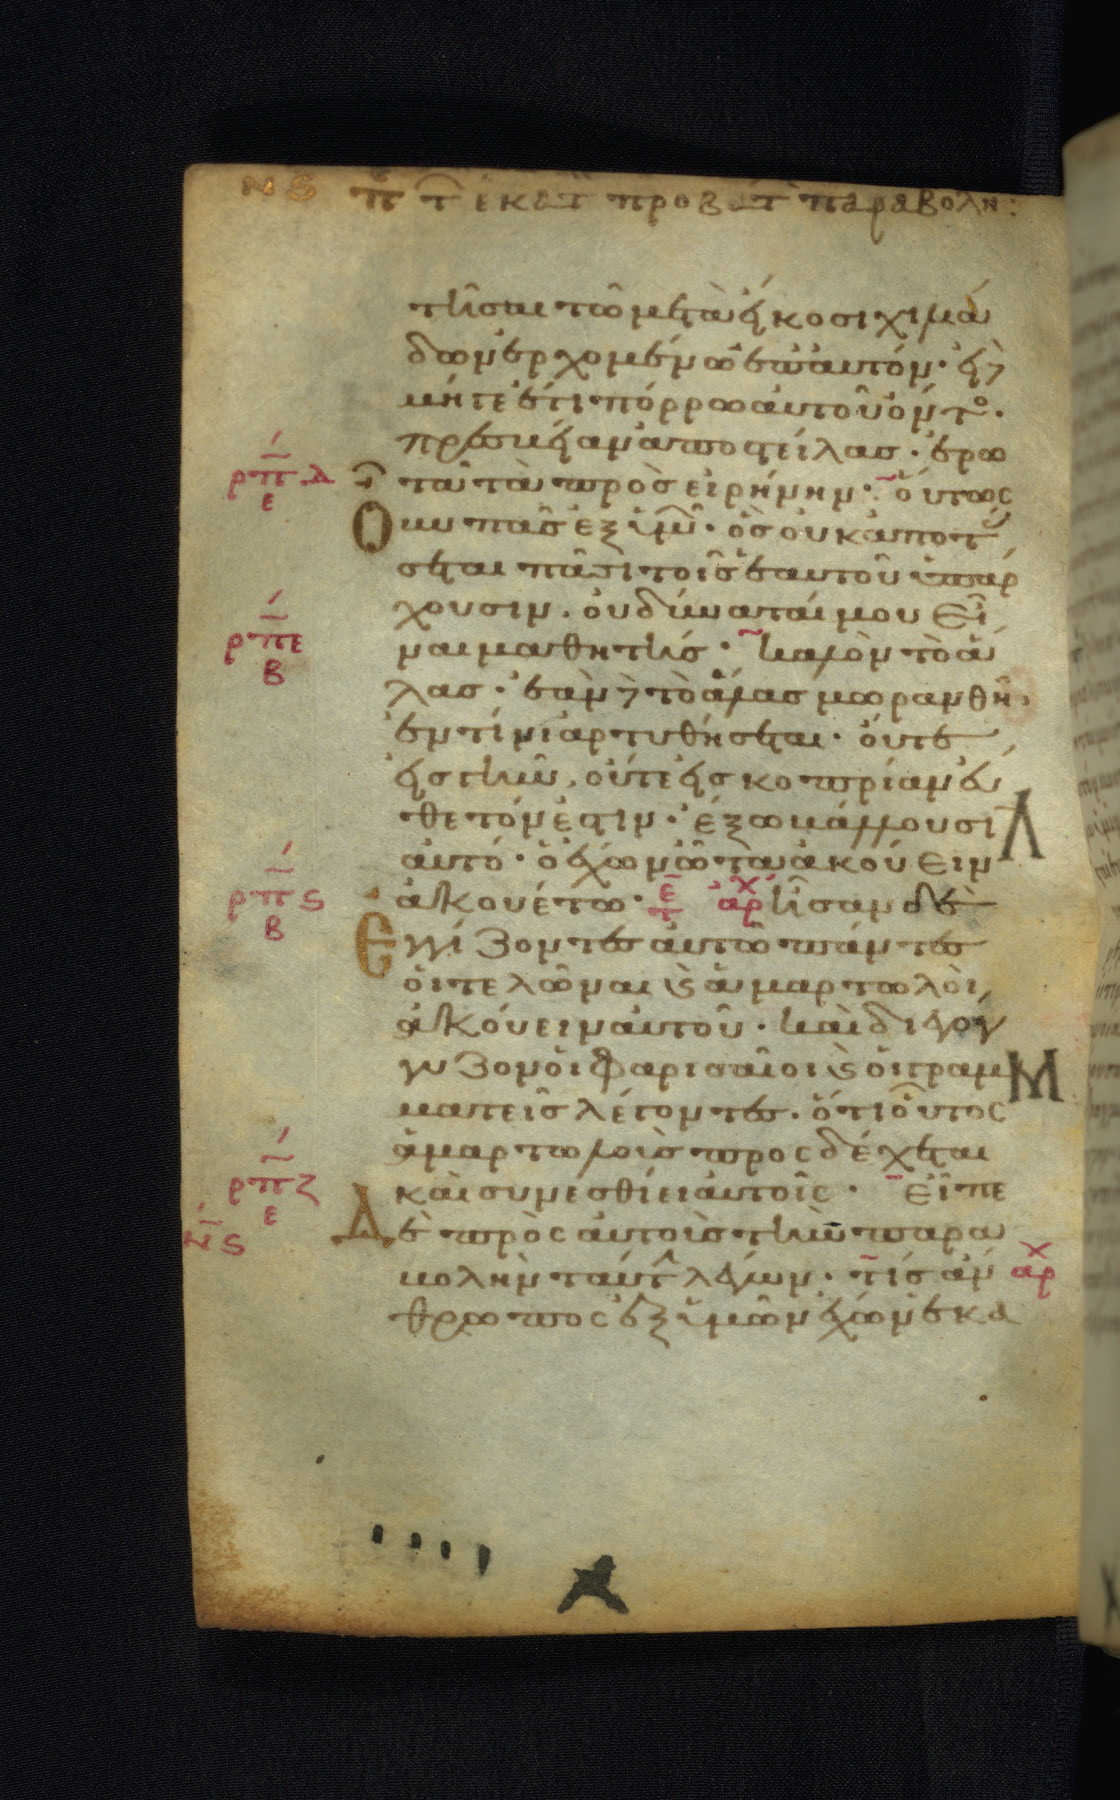 ΝϚ π τ ἑκατ προβάτ παραβολη:
τῆσαι τῶ μετὰ εἴκοσι χιλιά
δων ἐρχομένω ἐπαυτόν· εἰ δὲ
μήτε ἔτι πόρρω αὐτοῦ ὄντο·
πρεσβείαν ἀποστείλας· ἐρω
ρπδ ε τᾶ τὰ πρὸς εἰρήνην· οὕτως
Ουν πᾶς ἐξ ὑμῶν· ὃς οὐκ ἀποτάσ
σεται πᾶσι τοῖς ἑαυτοῦ ὑπάρ
χουσιν, οὐ δύναταί μου εἶ
ρπε β ναι μαθητής· καλὸν τὸ ἅ
λας· ἐὰν δὲ τὸ ἅλας μωρανθῆ
ἐν τίνι ἀρτυθήσεται· οὔτε
εἰς γῆν, οὔτε εἰς κοπρίαν εὔ
θετόν ἐστιν· ἔξω βάλλουσιν
αὐτό· ὁ ἔχων ὦτα ἀκούειν
ρπϚ β ἀκουέτω· τε ἀρχ ἦσαν δὲ
Εγγίζοντες αὐτῶ πάντες
οἱ τελῶναι καὶ ἁμαρτωλοὶ
ἀκούειν αὐτοῦ· καὶ διεγόγ
γυζον οἱ φαρισαῖοι καὶ οἱ γραμ
ματεῖς λέγοντες· ὅτι οὗτος
ἁμαρτωλοὺς προσδέχεται
ρπζ ε καὶ συνεσθίει αὐτοῖς· εἶπε
ΝϚ Δὲ πρὸς αὐτοὺς τὴν παρα
βολὴν ταύτ λέγων· τίς ἄν ἀρχ
θρωπος ἐξ ὑμῶν ἔχων ἑκα